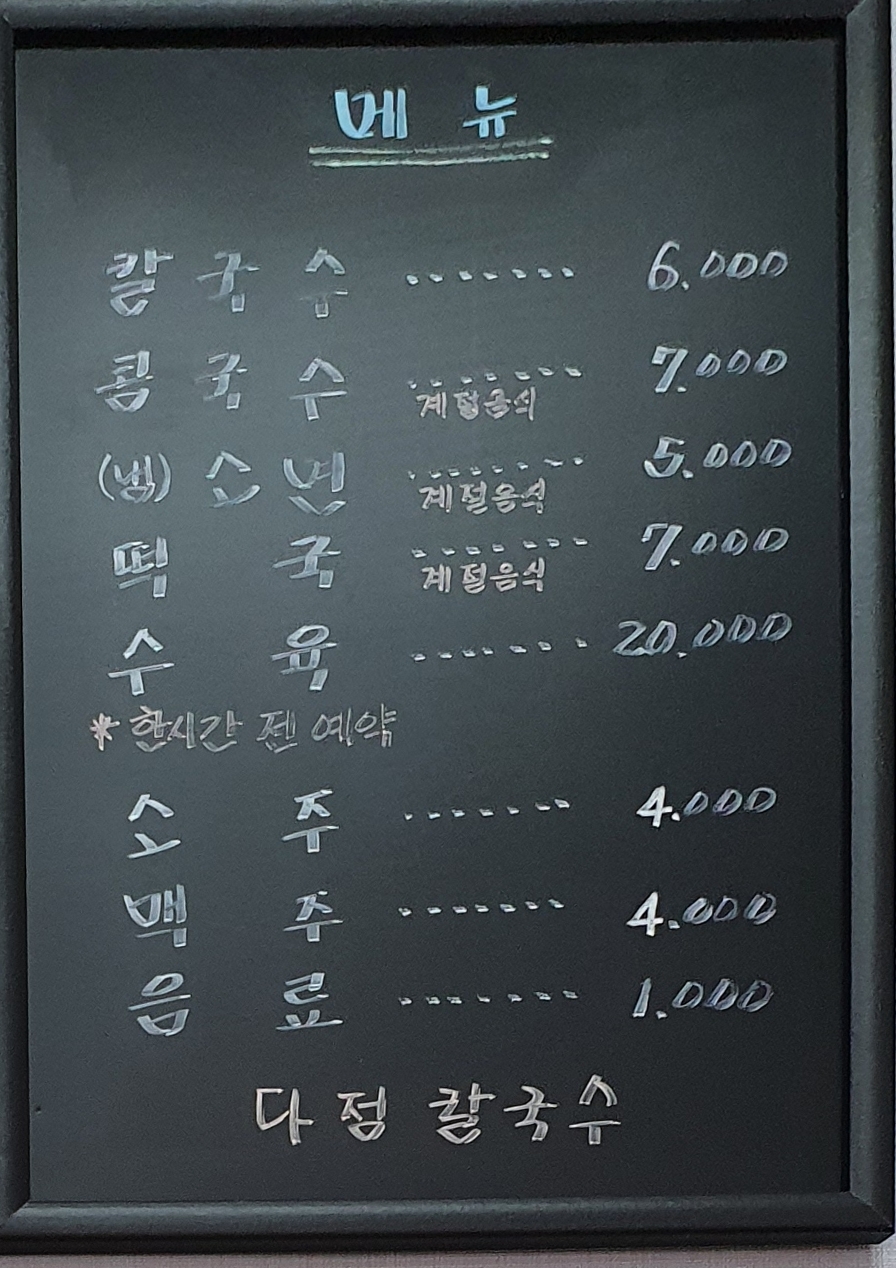 메 뉴
칼 국 수 ······· 6.000
콩 국 수 ······· 7.000
계절음식
(냄) 소 면 ······· 5.000
계절음식
떡 국 ······· 7.000
계절음식
수 육 ······· 20.000
* 한시간 젠 예약
소 주 ······· 4.000
맥 주 ······· 4.000
음 료 ······· 1.000
다 정 칼 국 수